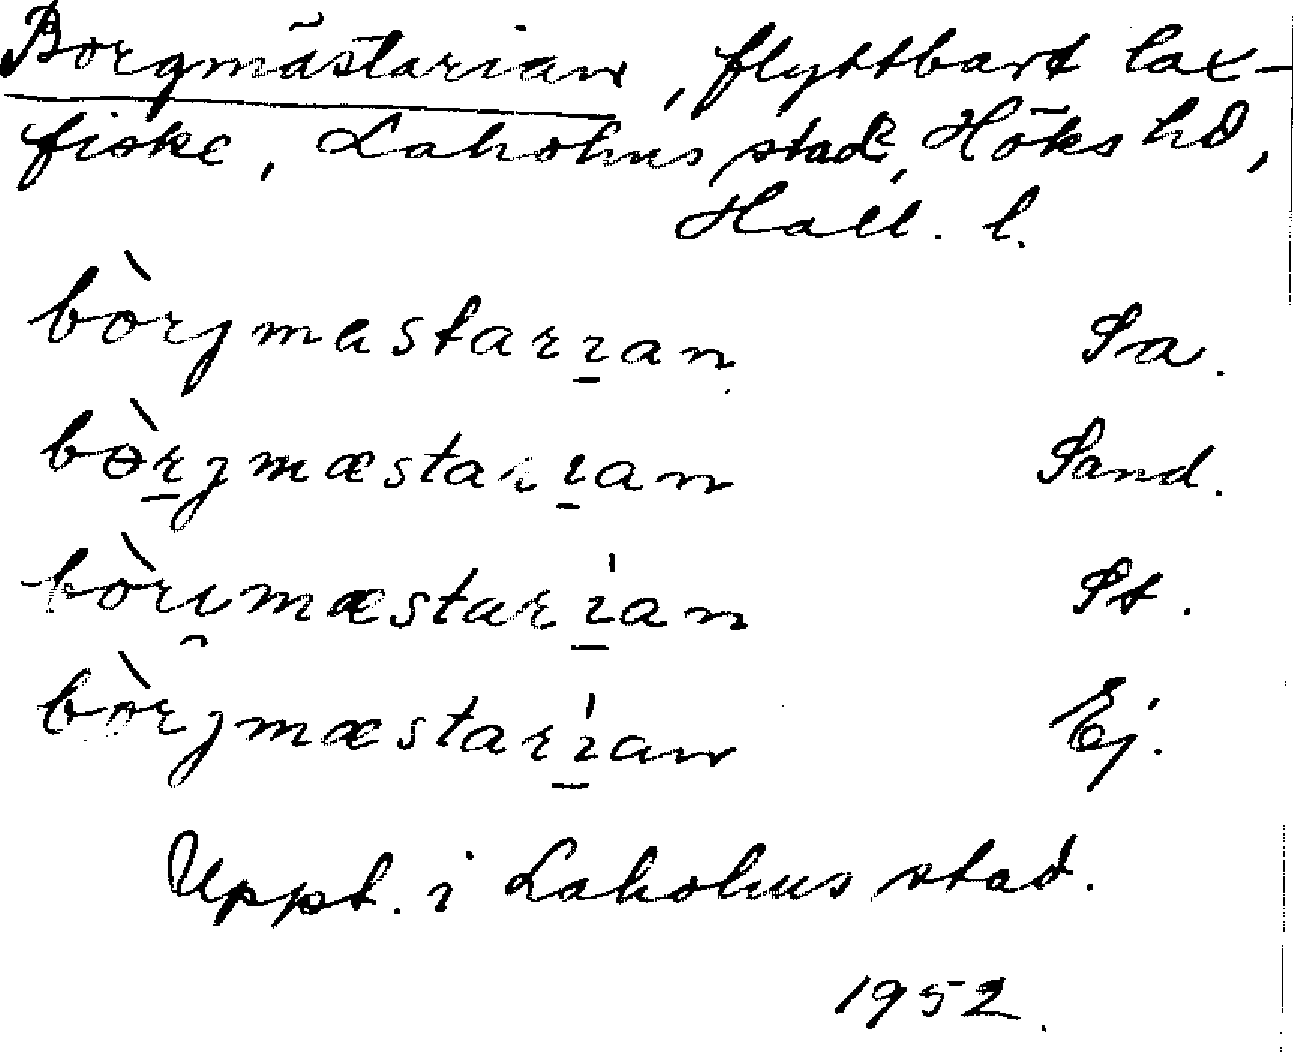 Borgmästarian, flyttbart lax-
fiske, Laholms stad, Höks hd,
Hall. l.
bòrjmastarı̱an Sa.
bòṟjmæstarı̱an Sand.
bòri̯mæstarı̱́an St.
bòrjmæstarı̱́an Ej.
Uppt. i Laholms stad.
1952.